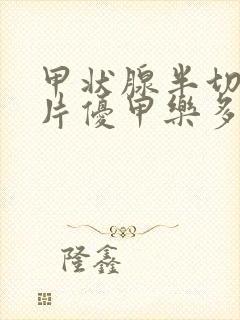 甲状腺半切
片優甲樂多
隆鑫